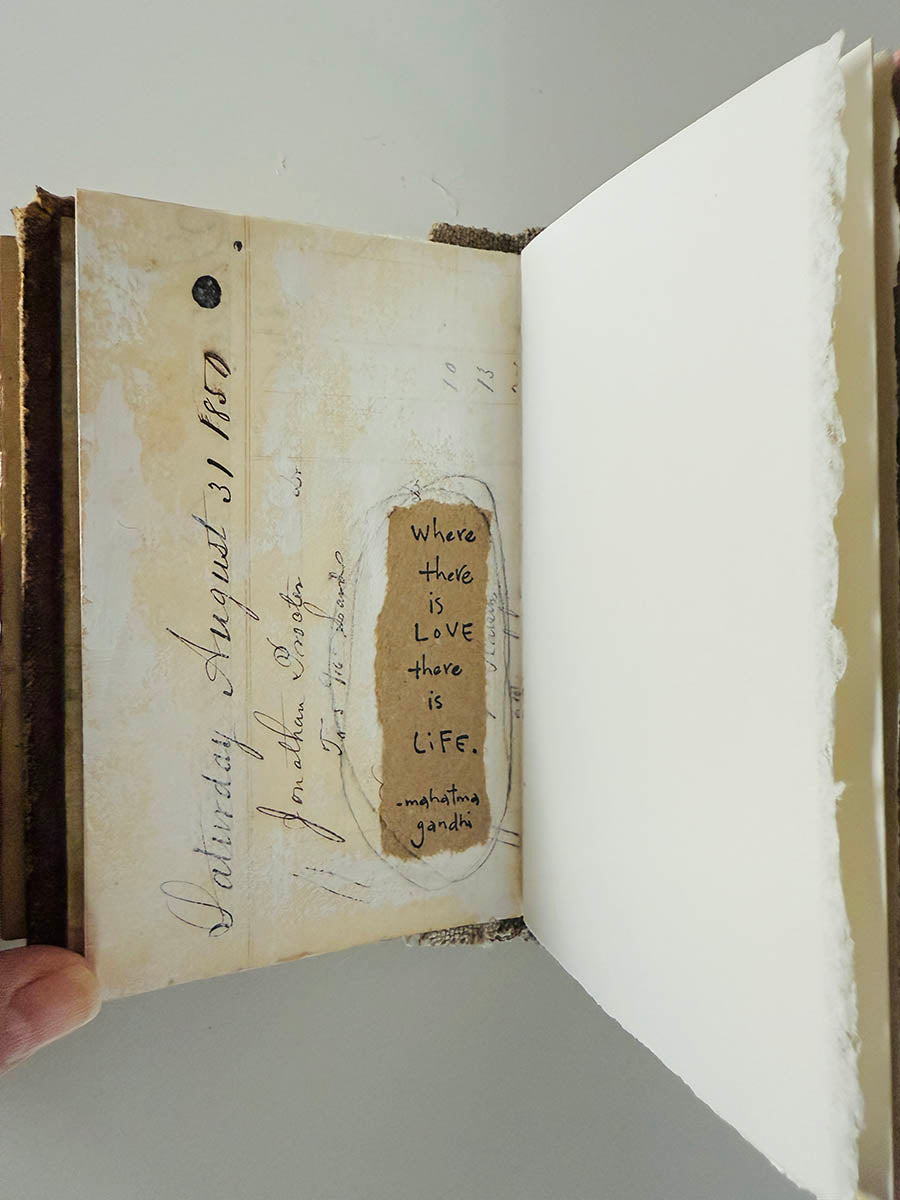 Saturday August 31 1850
Jonathan Procter Dr
10
13
where
there
is
LOVE
there
is
LiFE.
-mahatma
gandhi